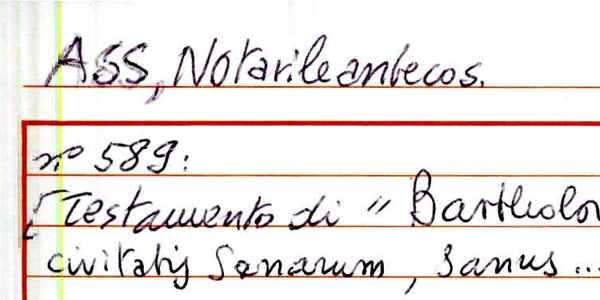 ASS, Notarile antecos.
nº 589:
[Testamento di " Bartholo
civitatis Senarum, sanus...